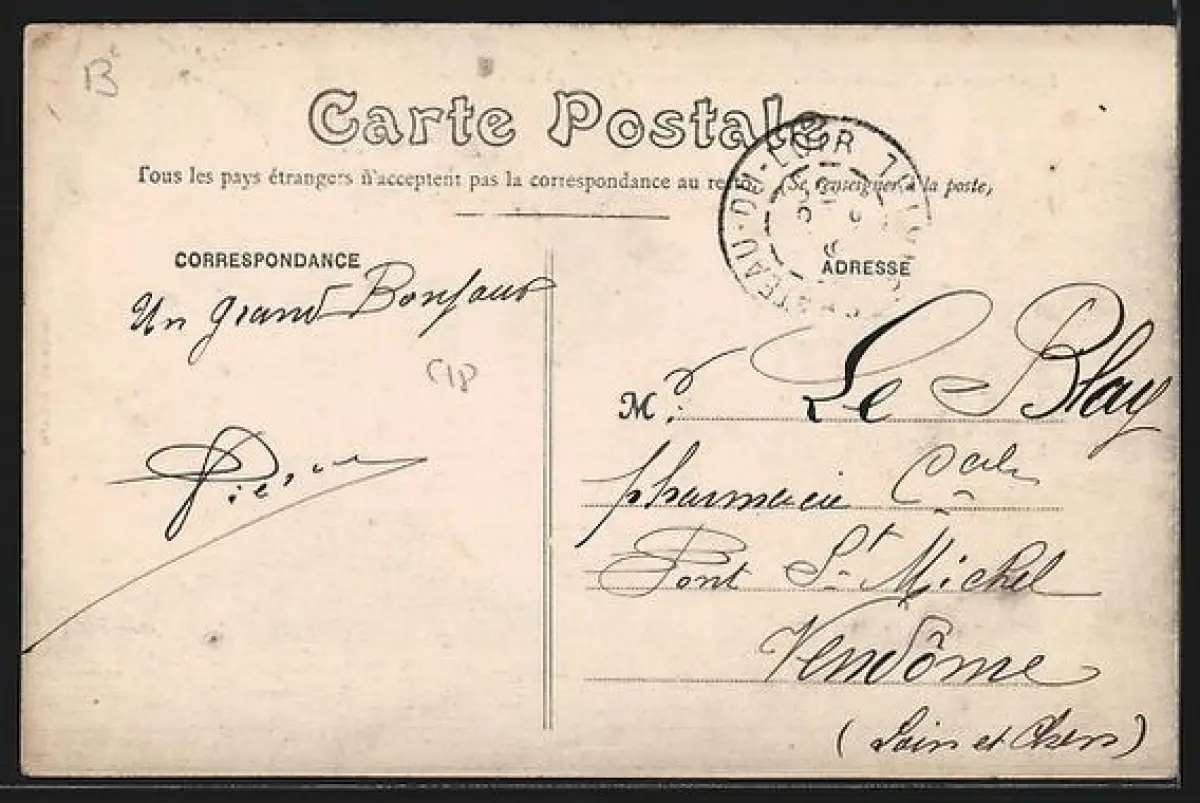 B
Carte Postale
Tous les pays étrangers n'acceptent pas la correspondance au recto (Se renseigner à la poste)
CHATEAU-DU-LOIR
CORRESPONDANCE
ADRESSE
Un grand Bonjour
Pierre
Mr Le Blay
pharmacie
Pont St Michel
Vendôme
(Loir et Cher)